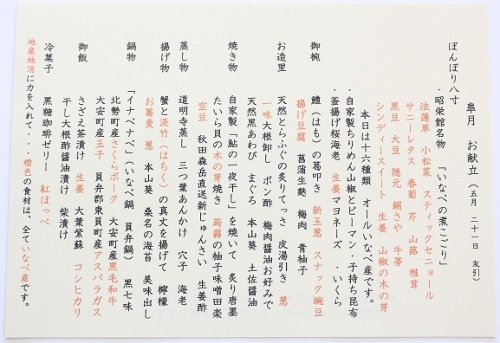 皐月　お献立（五月　二十一日　友引）
ぼんぼり八寸
・昭栄館名物　「いなべの煮こごり」
法蓮草　小松菜　スティックセニョール
サニーレタス　春菊　芹　山蕗　椎茸
黒豆　大豆　隠元　絹さや　牛蒡
シンディースイート　生姜　山椒の木の芽
本日は十六種類　オールいなべ産です。
・自家製ちりめん山椒とピーマン・子持ち昆布
・釜揚げ桜海老　生姜マヨネーズ　・いくら
御椀　鱧（はも）の葛叩き　新玉葱　スナック豌豆
揚げ豆腐　菖蒲生麩　梅肉　青柚子
お造里　天然とらふぐの炙りてっさ　皮湯引き　葱
一味　大根卸し　ポン酢　梅肉醤油お好みで
天然黒あわび　まぐろ　本山葵　土佐醤油
焼き物　自家製「鮎の一夜干し」を焼いて　炙り唐墨
たいら貝の木の芽焼き　蒟蒻の柚子味噌田楽
空豆　秋田森岳直送新じゅんさい　生姜酢
蒸し物　道明寺蒸し　三つ葉あんかけ　穴子　海老
揚げ物　蟹と淡竹（はちく）の真丈を揚げて　檸檬
お蕎麦　本山葵　桑名の海苔　美味出し
鍋物　「イナベナベ」（いなべ鍋　員弁鍋）　黒七味
北勢町産さくらポーク　大安町産黒毛和牛
大安町産玉子　員弁郡東員町産アスパラガス
御飯　さざえ茶漬け　生姜　大葉紫蘇　コシヒカリ
干し大根酢醤油漬け　柴漬け
冷菓子　黒糖珈琲ゼリー　紅ほっぺ
地産地消に力を入れて・・・橙色の食材は、全ていなべ産です。